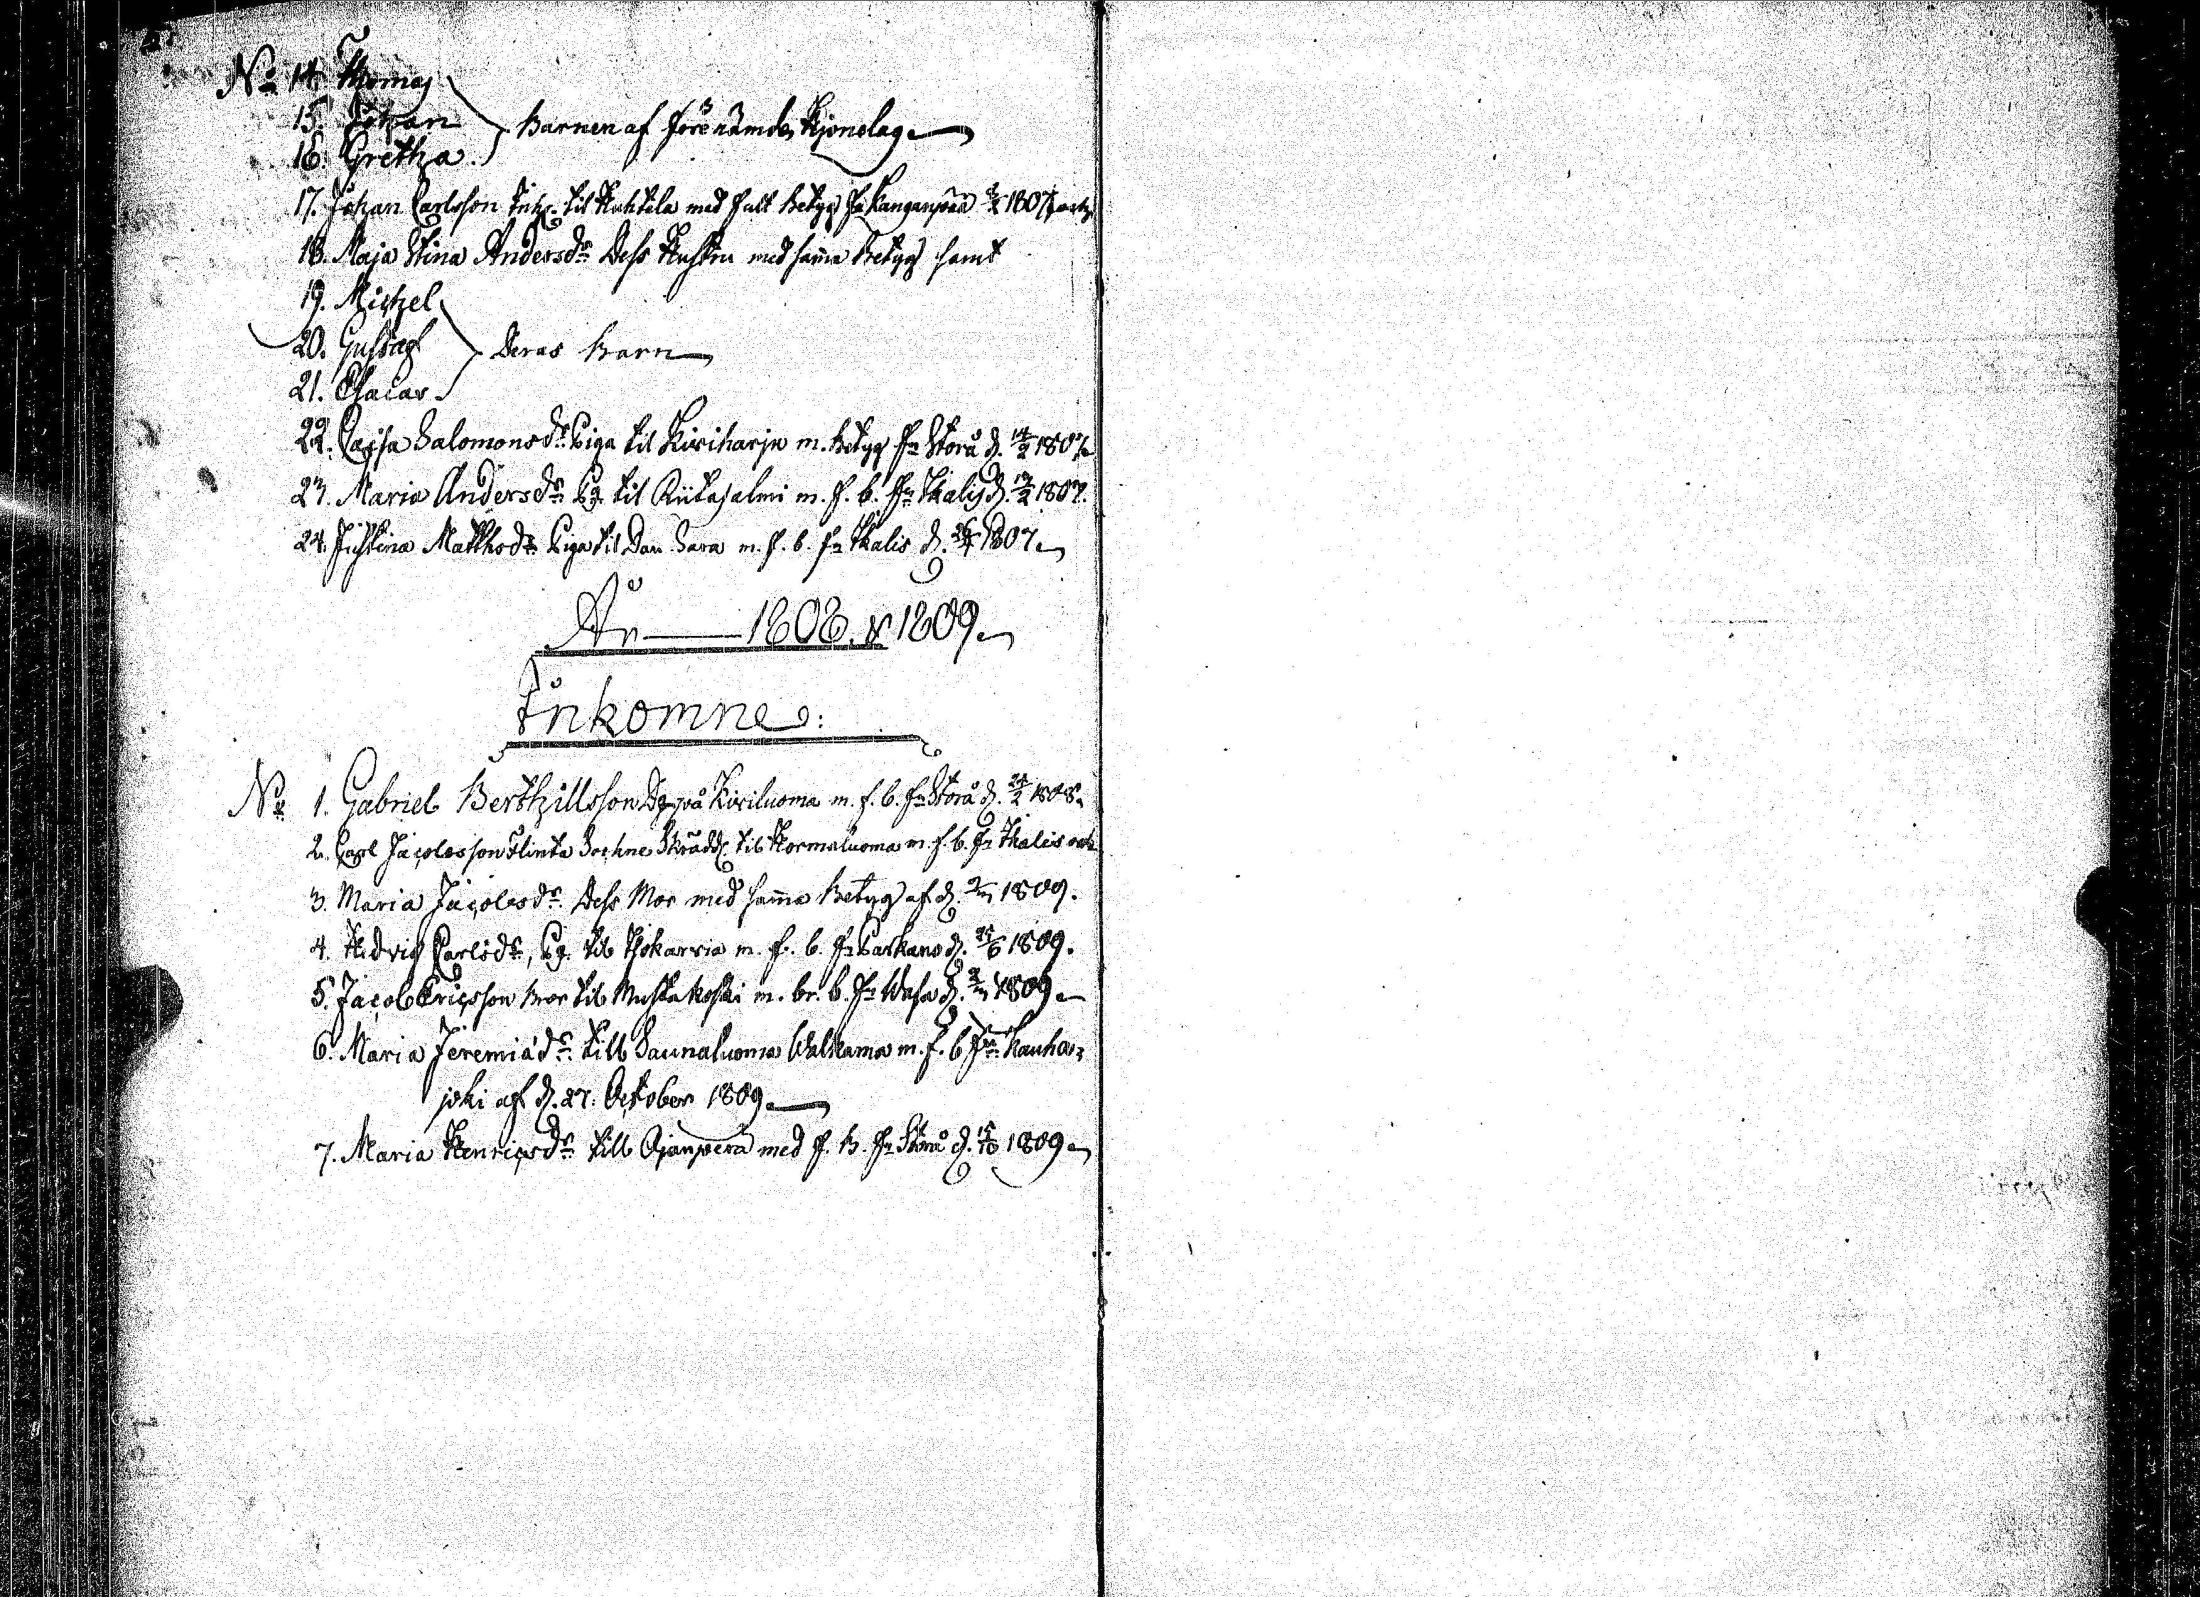 No 14. Thomas
15. Johan
16. Gretha
Barnen af förenämde Hjonelag
17. Johan Carlsson Inh. til Huhtila med fult Betyg fr Kanganpää 1807 och
18. Maja Stina Andersdr Dess Hustru med sama Betyg samt
19. Michel
20. Gustaf
21. Esaias
Deras Barn
22. Cajsa Salomonsdr Piga til Kiviharju m. Betyg fr Storå d. 14/2 1807
23. Maria Andersdr Pig. til Riitasalmi m. f. b. fr Ikalis d. 1807.
24. Justina Matthsdr Piga til Dan. Sara m. f. b. fr Ikalis d. 1807
År 1808 & 1809
Inkomne:
No 1. Gabriel Berthillsson Dg på Kiviluoma m. f. b. fr Storå d. 24/2 1808
2. Carl Jacobsson Flinta Sochne Skrädd. til Hormaluoma m. f. b. fr Ikalis och
3. Maria Jacobsdr Dess Mor med sama Betyg af d. 1809.
4. Hedvig Carlsdr, Pig. til m. f. b. fr Parkano d. 1809.
5. Jacob Ericsson Bror til Mustakoski m. br. b. fr Wasa d. 1809
6. Maria Jeremiädr till Saunaluoma Walkama m. f. b. fr Kauha-
joki af d. 27. October 1809
7. Maria Henricsdr till Ojanpera med f. B. fr Storå d. 15/10 1809